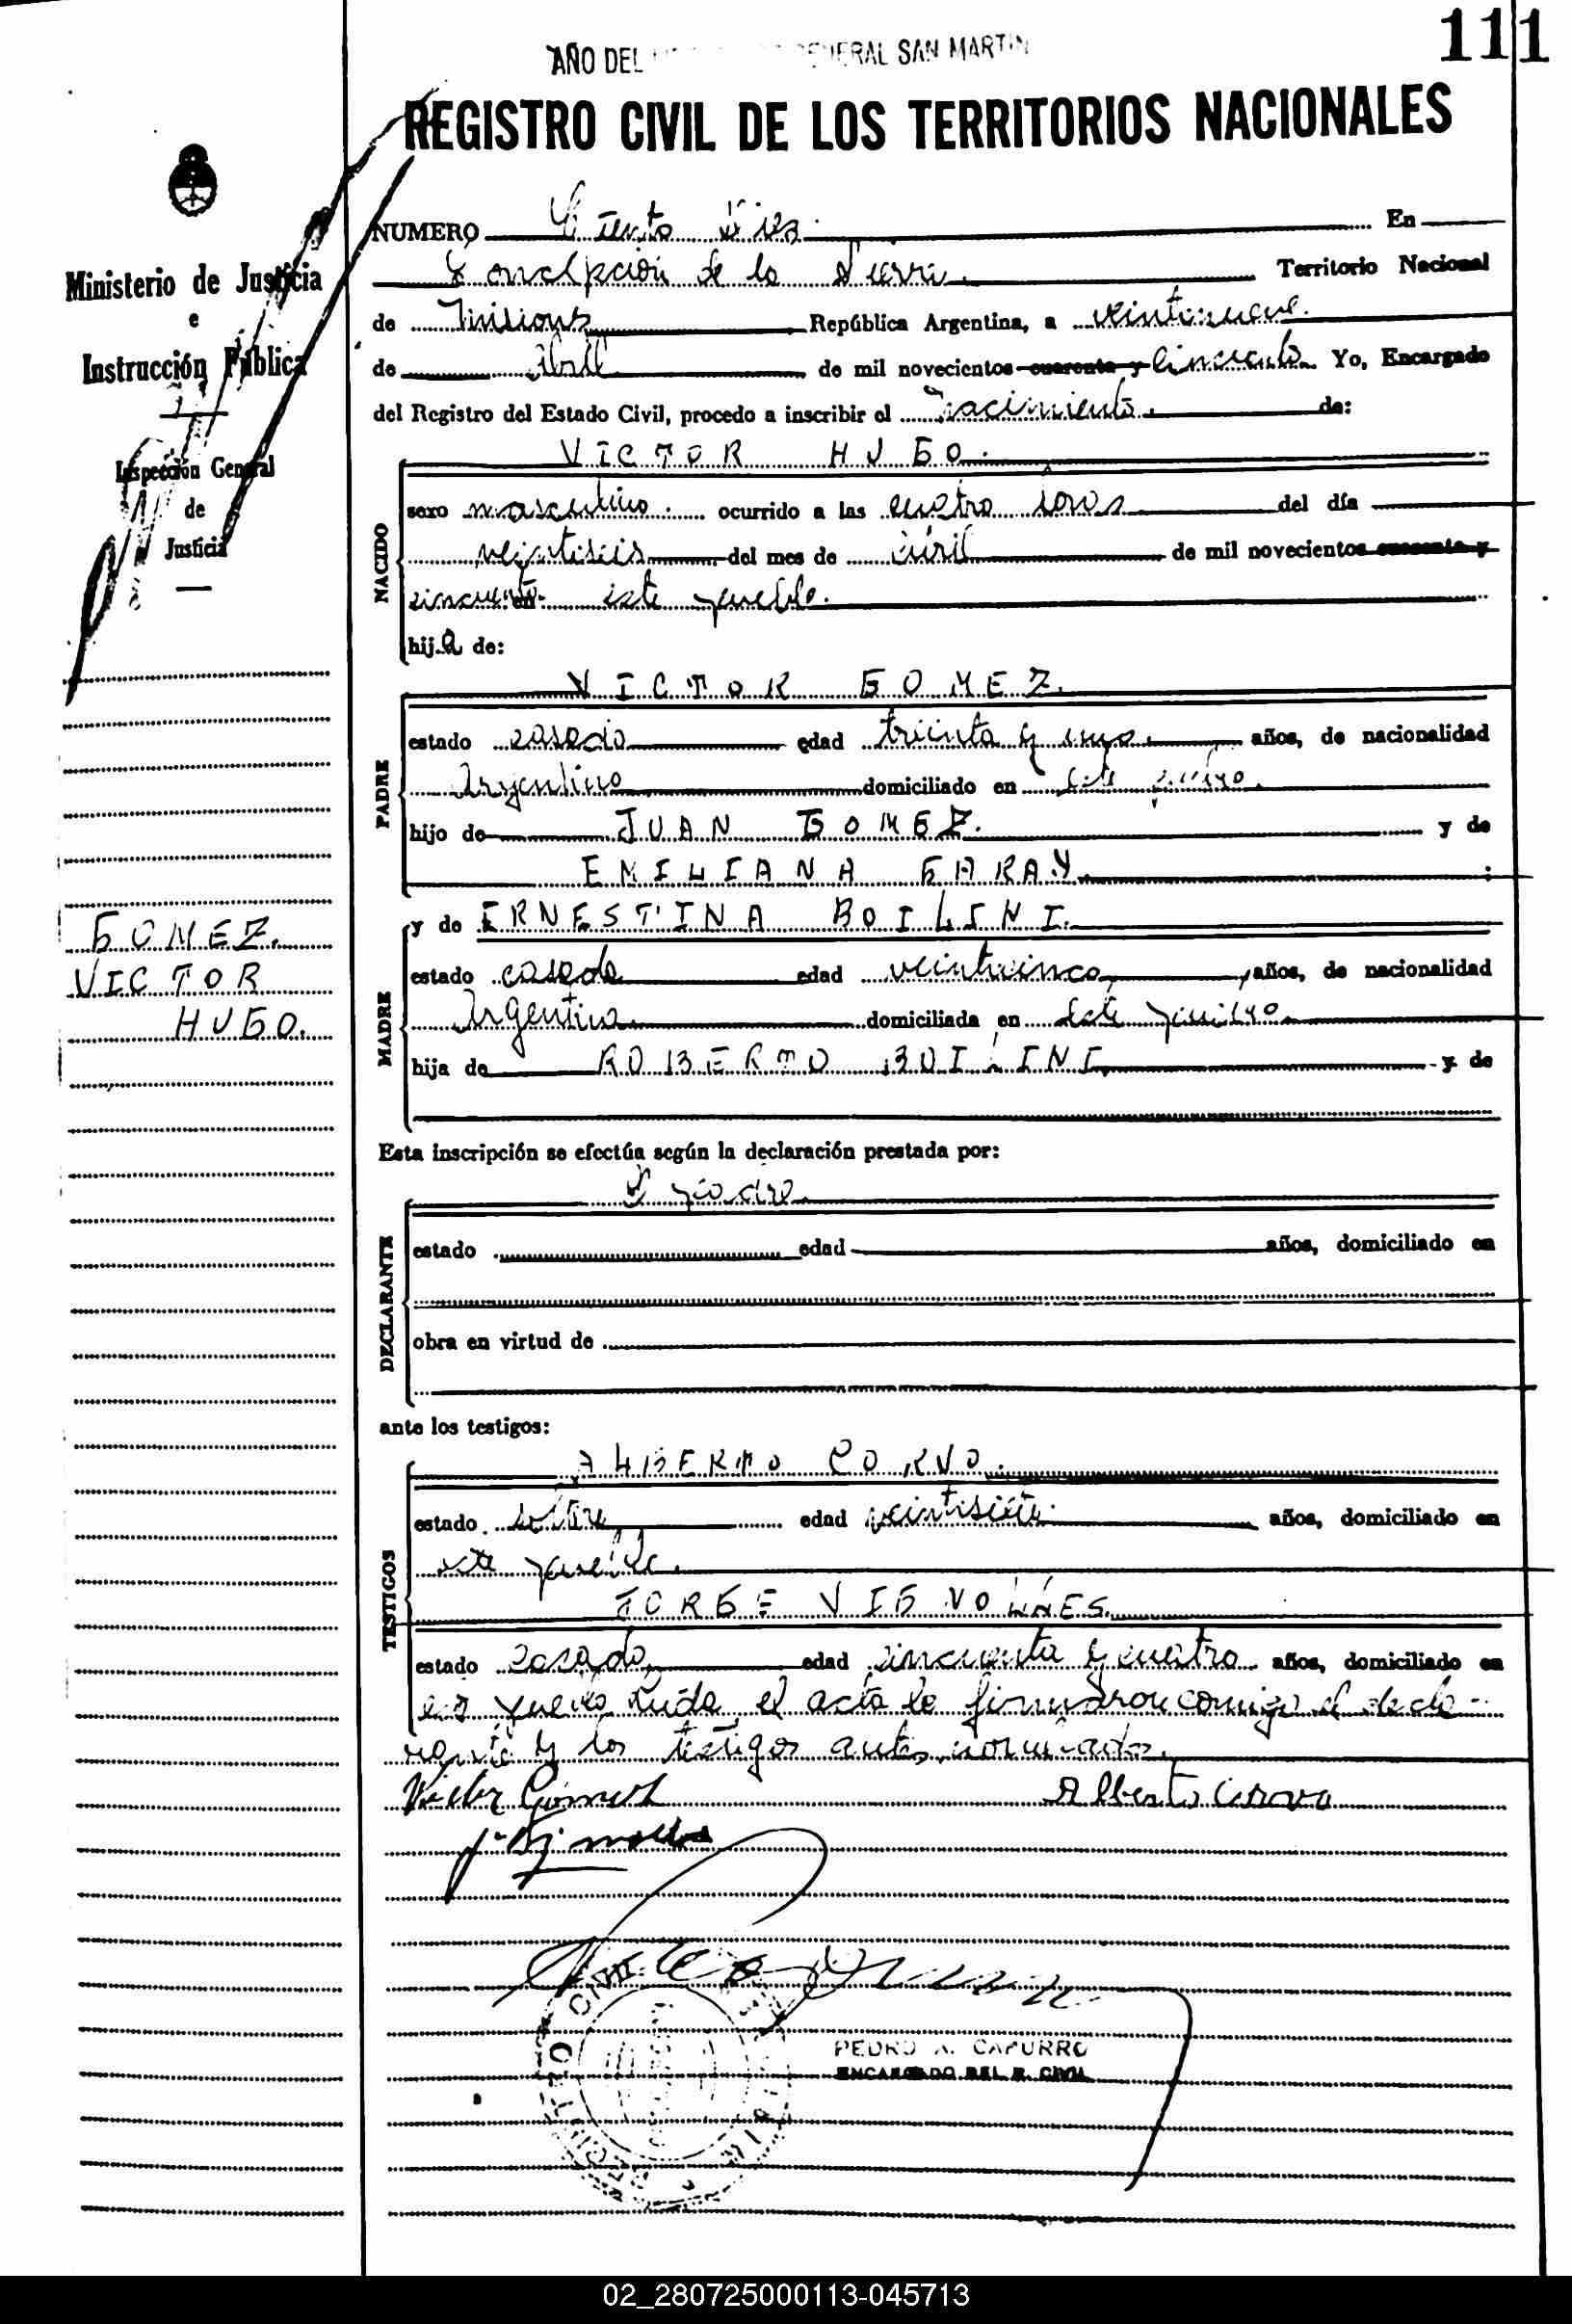 111
AÑO DEL GENERAL SAN MARTIN
REGISTRO CIVIL DE LOS TERRITORIOS NACIONALES
Ministerio de Justicia
e
Instrucción Pública
Inspección General
de
Justicia
GOMEZ.
VICTOR
HUGO.
NUMERO Ciento diez. En
Concepción de la Sierra. Territorio Nacional
de Misiones República Argentina, a veintinueve.
de Abril de mil novecientos cuarenta y cincuenta. Yo, Encargado
del Registro del Estado Civil, procedo a inscribir el nacimiento. de:
NACIDO
VICTOR HUGO.
sexo masculino. ocurrido a las cuatro horas del día
veintiseis del mes de abril de mil novecientos cuarenta y
cincuenta en este pueblo.
hijo de:
PADRE
VICTOR GOMEZ.
estado casado edad treinta y uno. años, de nacionalidad
Argentino domiciliado en este pueblo.
hijo de JUAN GOMEZ. y de
EMILIANA GARAY ;
MADRE
y de ERNESTINA BOILINI.
estado casada edad veinticinco, años, de nacionalidad
Argentina domiciliada en este pueblo.
hija de ROBERTO BOILINI, y de
Esta inscripción se efectúa según la declaración prestada por:
DECLARANTE
El padre.
estado edad años, domiciliado en
obra en virtud de
ante los testigos:
TESTIGOS
ALBERTO CORVO.
estado soltero edad veintisiete. años, domiciliado en
este pueblo.
JORGE VIGNOLLES.
estado casado, edad cincuenta y cuatro años, domiciliado en
pueblo Leida el acta la firmaron conmigo el decla-
rante y los testigos antes nombrados.
Victor Gómez Alberto Corvo
PEDRO A. CAPURRO
ENCARGADO DEL R. CIVIL
02_280725000113-045713